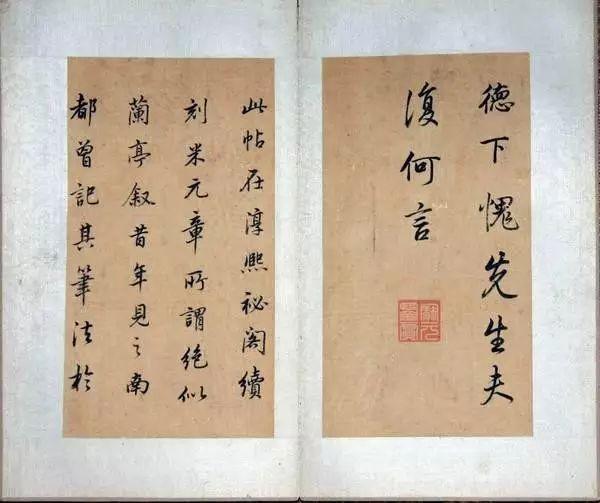 德下愧先生夫
復何言
此帖在淳熙祕閣續
刻米元章所謂絕似
蘭亭敘昔年見之南
都曾記其筆法於